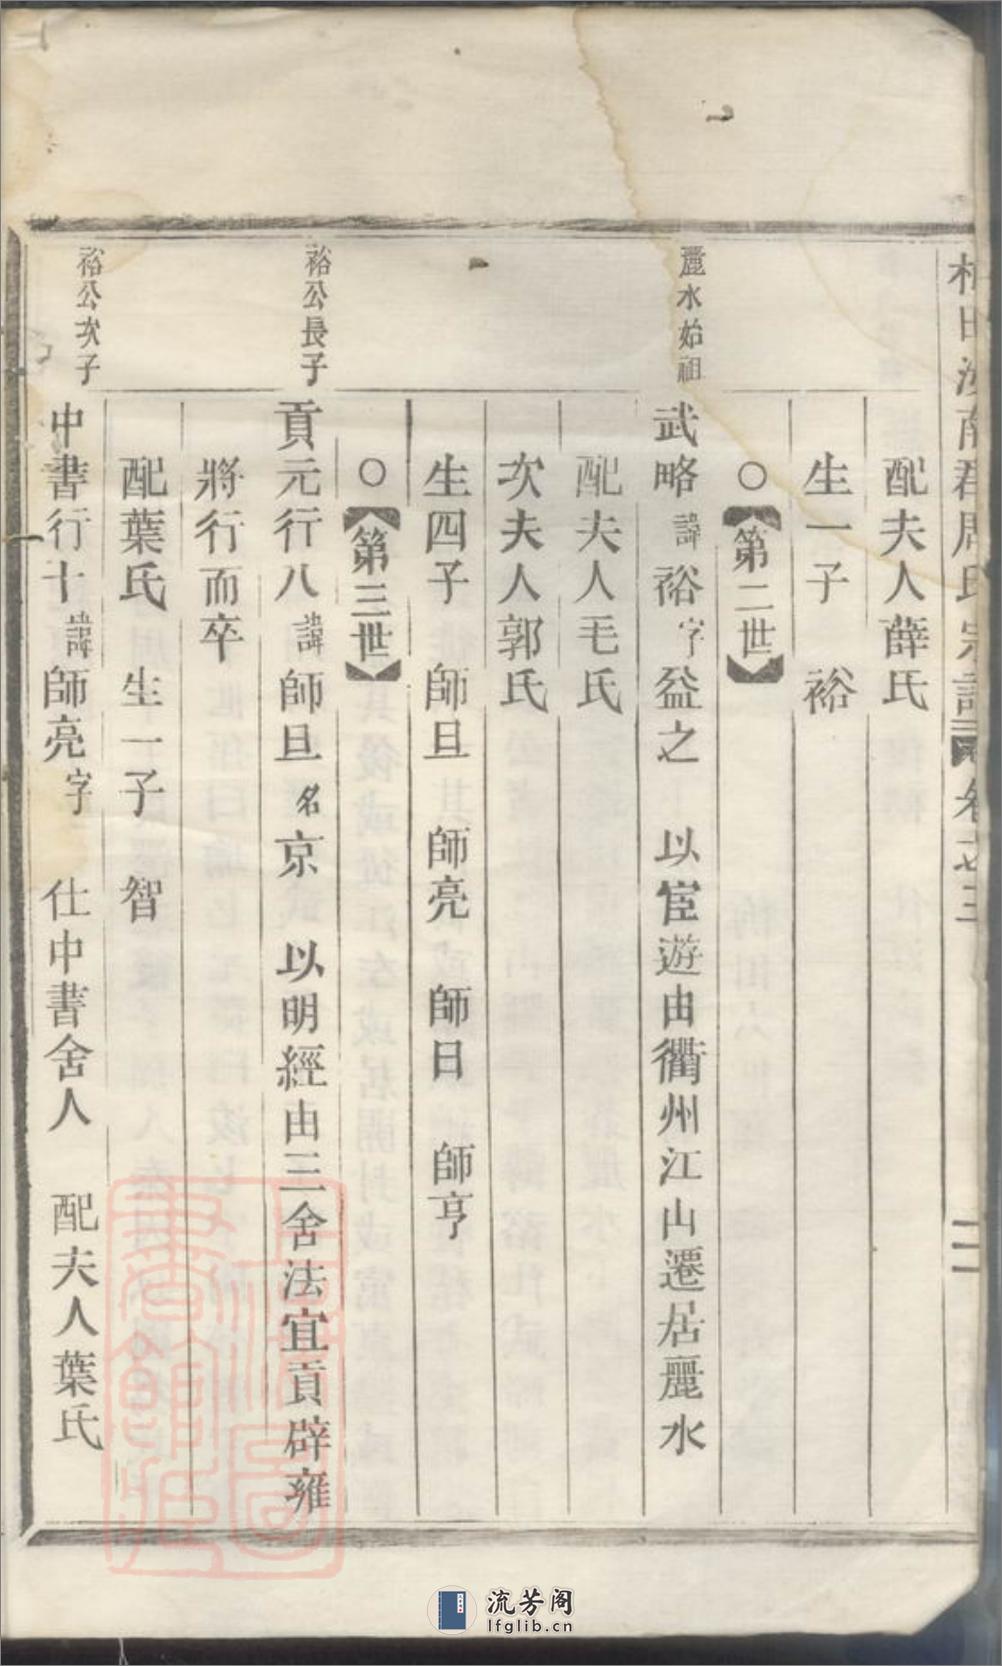 田 南郡周氏宗譜 卷之三
二
配夫人薛氏
生一子 裕
○【第二世】
麗水始祖
武略諱裕字益之 以宦遊由衢州江山遷居麗水
配夫人毛氏
次夫人郭氏
生四子 師旦 師亮 師日 師亨
○【第三世】
裕公長子
貢元行八諱師旦名京 以明經由三舍法宜貢辟雍
將行而卒
配葉氏 生一子 智
裕公次子
中書行十諱師亮字 仕中書舍人 配夫人葉氏
流芳阁
lfglib.cn